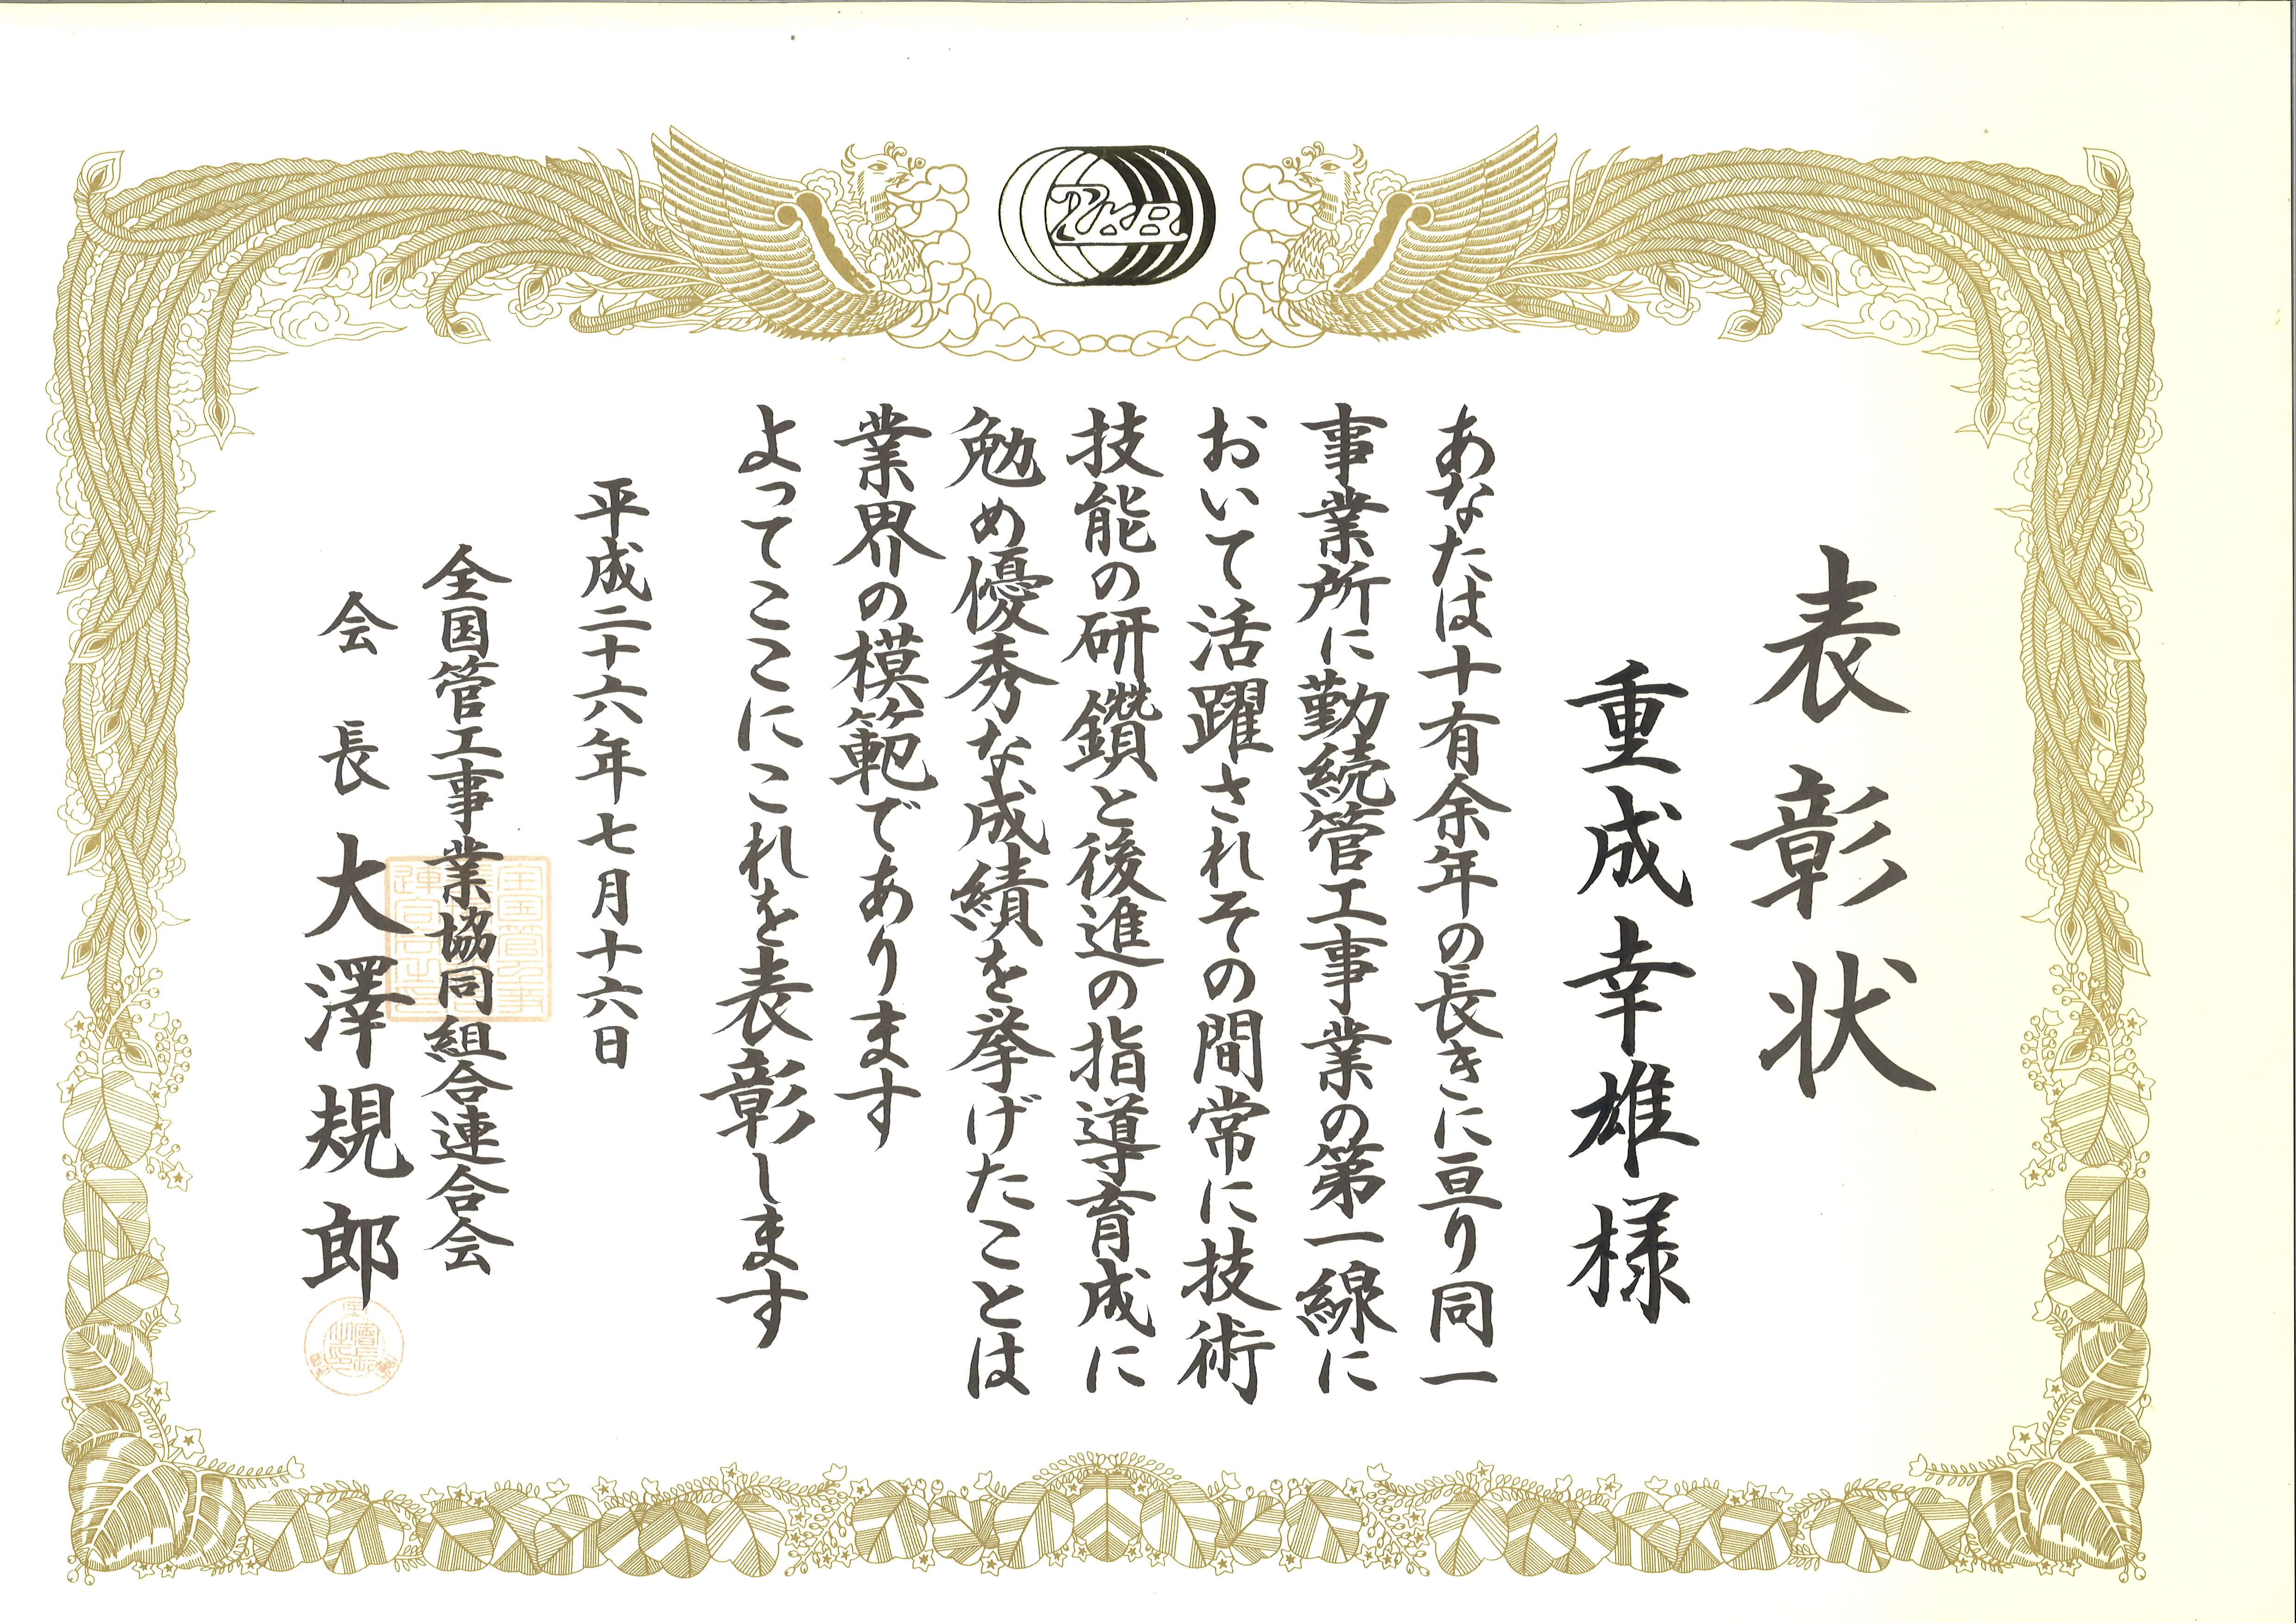 表彰状
重成幸雄様
あなたは十有余年の長きに亘り同一
事業所に勤続管工事業の第一線に
おいて活躍されその間常に技術
技能の研鑽と後進の指導育成に
勉め優秀な成績を挙げたことは
業界の模範であります
よってここにこれを表彰します
平成二十六年七月十六日
全国管工事業協同組合連合会
会長 大澤規郎